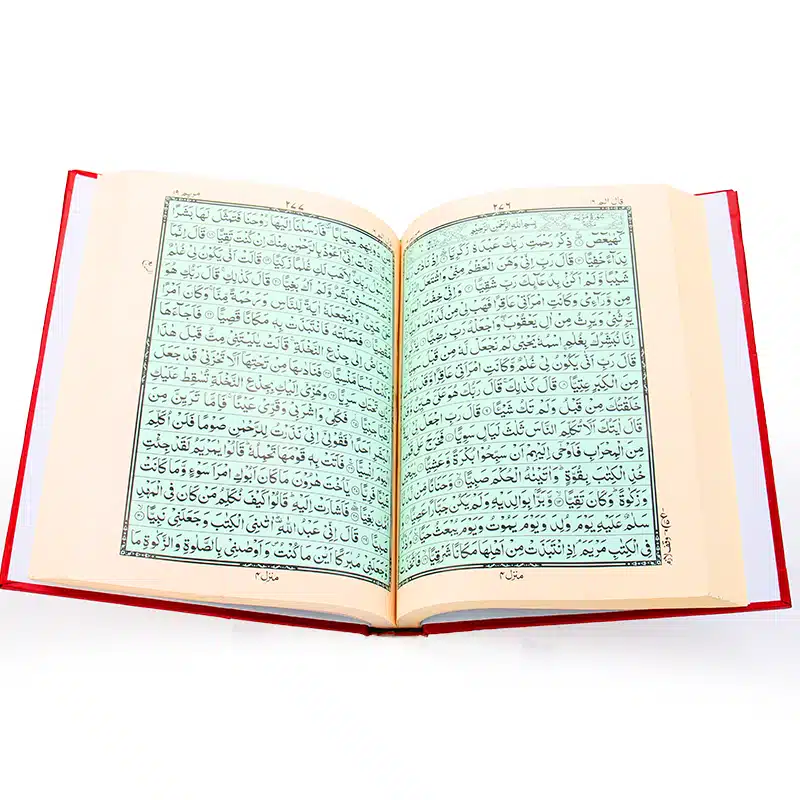 قَالَ اَلَمْ
٢٧٦
بِسْمِ اللّٰهِ الرَّحْمٰنِ الرَّحِيْمِ
كٓهٰيٰعٓصٓ ذِكْرُ رَحْمَتِ رَبِّكَ عَبْدَهٗ زَكَرِيَّا اِذْ نَادٰى
نِدَآءً خَفِيًّا قَالَ رَبِّ اِنِّىْ وَهَنَ الْعَظْمُ مِنِّىْ وَاشْتَعَلَ
شَيْبًا وَّلَمْ اَكُنْۢ بِدُعَآئِكَ رَبِّ شَقِيًّا وَاِنِّىْ خِفْتُ
مِنْ وَّرَآءِىْ وَكَانَتِ امْرَاَتِىْ عَاقِرًا فَهَبْ لِىْ مِنْ لَّدُنْكَ
يَّرِثُنِىْ وَيَرِثُ مِنْ اٰلِ يَعْقُوْبَ وَاجْعَلْهُ رَبِّ رَضِيًّا
اِنَّا نُبَشِّرُكَ بِغُلٰمِ ۨاسْمُهٗ يَحْيٰى لَمْ نَجْعَلْ لَّهٗ مِنْ قَبْلُ
قَالَ رَبِّ اَنّٰى يَكُوْنُ لِىْ غُلٰمٌ وَّكَانَتِ امْرَاَتِىْ عَاقِرًا وَّقَدْ
مِنَ الْكِبَرِ عِتِيًّا قَالَ كَذٰلِكَ قَالَ رَبُّكَ هُوَ عَلَىَّ هَيِّنٌ
خَلَقْتُكَ مِنْ قَبْلُ وَلَمْ تَكُ شَيْئًا قَالَ رَبِّ اجْعَلْ
قَالَ اٰيَتُكَ اَلَّا تُكَلِّمَ النَّاسَ ثَلٰثَ لَيَالٍ سَوِيًّا فَخَرَجَ
مِنَ الْمِحْرَابِ فَاَوْحٰٓى اِلَيْهِمْ اَنْ سَبِّحُوْا بُكْرَةً وَّعَشِيًّا
خُذِ الْكِتٰبَ بِقُوَّةٍ وَاٰتَيْنٰهُ الْحُكْمَ صَبِيًّا وَّحَنَانًا مِّنْ
وَزَكٰوةً وَكَانَ تَقِيًّا وَّبَرًّۢا بِوَالِدَيْهِ وَلَمْ يَكُنْ جَبَّارًا عَصِيًّا
سَلٰمٌ عَلَيْهِ يَوْمَ وُلِدَ وَيَوْمَ يَمُوْتُ وَيَوْمَ يُبْعَثُ حَيًّا
فِى الْكِتٰبِ مَرْيَمَ اِذِ انْتَبَذَتْ مِنْ اَهْلِهَا مَكَانًا شَرْقِيًّا
منزل ٤
مريم ١٩
٢٧٧
دُوْنِهِمْ حِجَابًا فَاَرْسَلْنَآ اِلَيْهَا رُوْحَنَا فَتَمَثَّلَ لَهَا بَشَرًا
قَالَتْ اِنِّىْٓ اَعُوْذُ بِالرَّحْمٰنِ مِنْكَ اِنْ كُنْتَ تَقِيًّا قَالَ اِنَّمَآ
رَسُوْلُ رَبِّكِ لِاَهَبَ لَكِ غُلٰمًا زَكِيًّا قَالَتْ اَنّٰى يَكُوْنُ لِىْ غُلٰمٌ
يَمْسَسْنِىْ بَشَرٌ وَّلَمْ اَكُ بَغِيًّا قَالَ كَذٰلِكِ قَالَ رَبُّكِ هُوَ
هَيِّنٌ وَلِنَجْعَلَهٗٓ اٰيَةً لِّلنَّاسِ وَرَحْمَةً مِّنَّا وَكَانَ اَمْرًا
فَحَمَلَتْهُ فَانْتَبَذَتْ بِهٖ مَكَانًا قَصِيًّا فَاَجَآءَهَا
الْمَخَاضُ اِلٰى جِذْعِ النَّخْلَةِ قَالَتْ يٰلَيْتَنِىْ مِتُّ قَبْلَ هٰذَا
نَسْيًا مَّنْسِيًّا فَنَادٰىهَا مِنْ تَحْتِهَآ اَلَّا تَحْزَنِىْ قَدْ جَعَلَ
تَحْتَكِ سَرِيًّا وَهُزِّىْٓ اِلَيْكِ بِجِذْعِ النَّخْلَةِ تُسٰقِطْ عَلَيْكِ
جَنِيًّا فَكُلِىْ وَاشْرَبِىْ وَقَرِّىْ عَيْنًا فَاِمَّا تَرَيِنَّ مِنَ
اَحَدًا فَقُوْلِىْٓ اِنِّىْ نَذَرْتُ لِلرَّحْمٰنِ صَوْمًا فَلَنْ اُكَلِّمَ
اِنْسِيًّا فَاَتَتْ بِهٖ قَوْمَهَا تَحْمِلُهٗ قَالُوْا يٰمَرْيَمُ لَقَدْ جِئْتِ
فَرِيًّا يٰٓاُخْتَ هٰرُوْنَ مَا كَانَ اَبُوْكِ امْرَاَ سَوْءٍ وَّمَا كَانَتْ
بَغِيًّا فَاَشَارَتْ اِلَيْهِ قَالُوْا كَيْفَ نُكَلِّمُ مَنْ كَانَ فِى الْمَهْدِ
صَبِيًّا قَالَ اِنِّىْ عَبْدُ اللّٰهِ اٰتٰنِىَ الْكِتٰبَ وَجَعَلَنِىْ نَبِيًّا
وَّجَعَلَنِىْ مُبٰرَكًا اَيْنَ مَا كُنْتُ وَاَوْصٰنِىْ بِالصَّلٰوةِ وَالزَّكٰوةِ مَا
منزل ٤